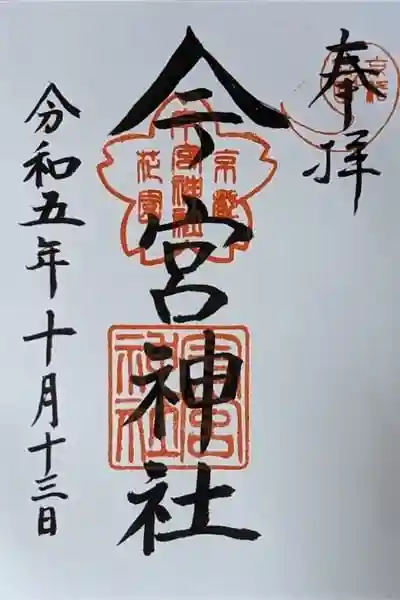 奉拝
今宮神社
京都
今宮神社
花園
今宮
神社
令和五年十月十三日